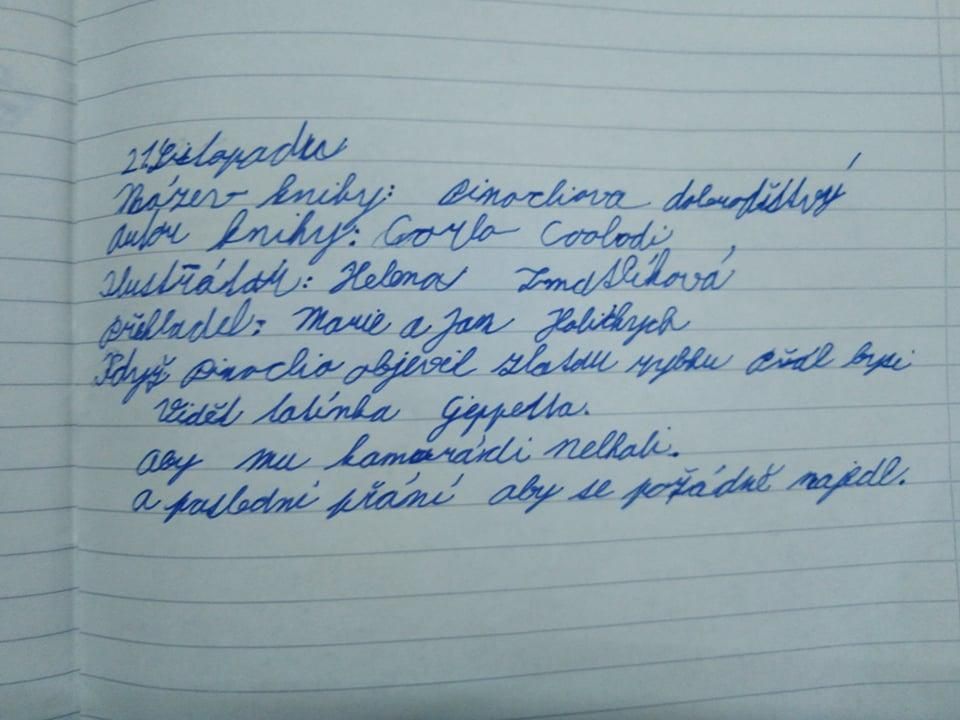 21. Listopadu
Název knihy: Pinochiova dobrodištvý
Autor knihy: Carlo Coolodi
Ilustřátor: Helena Zmatlíková
Překladel: Marie a Jan
Když Pinochio objevil zlatou rybku přál bysi
Viděl tatínka Geppetta.
aby mu kamarádi nelhali.
a poslední přání aby se pořádně najedl.